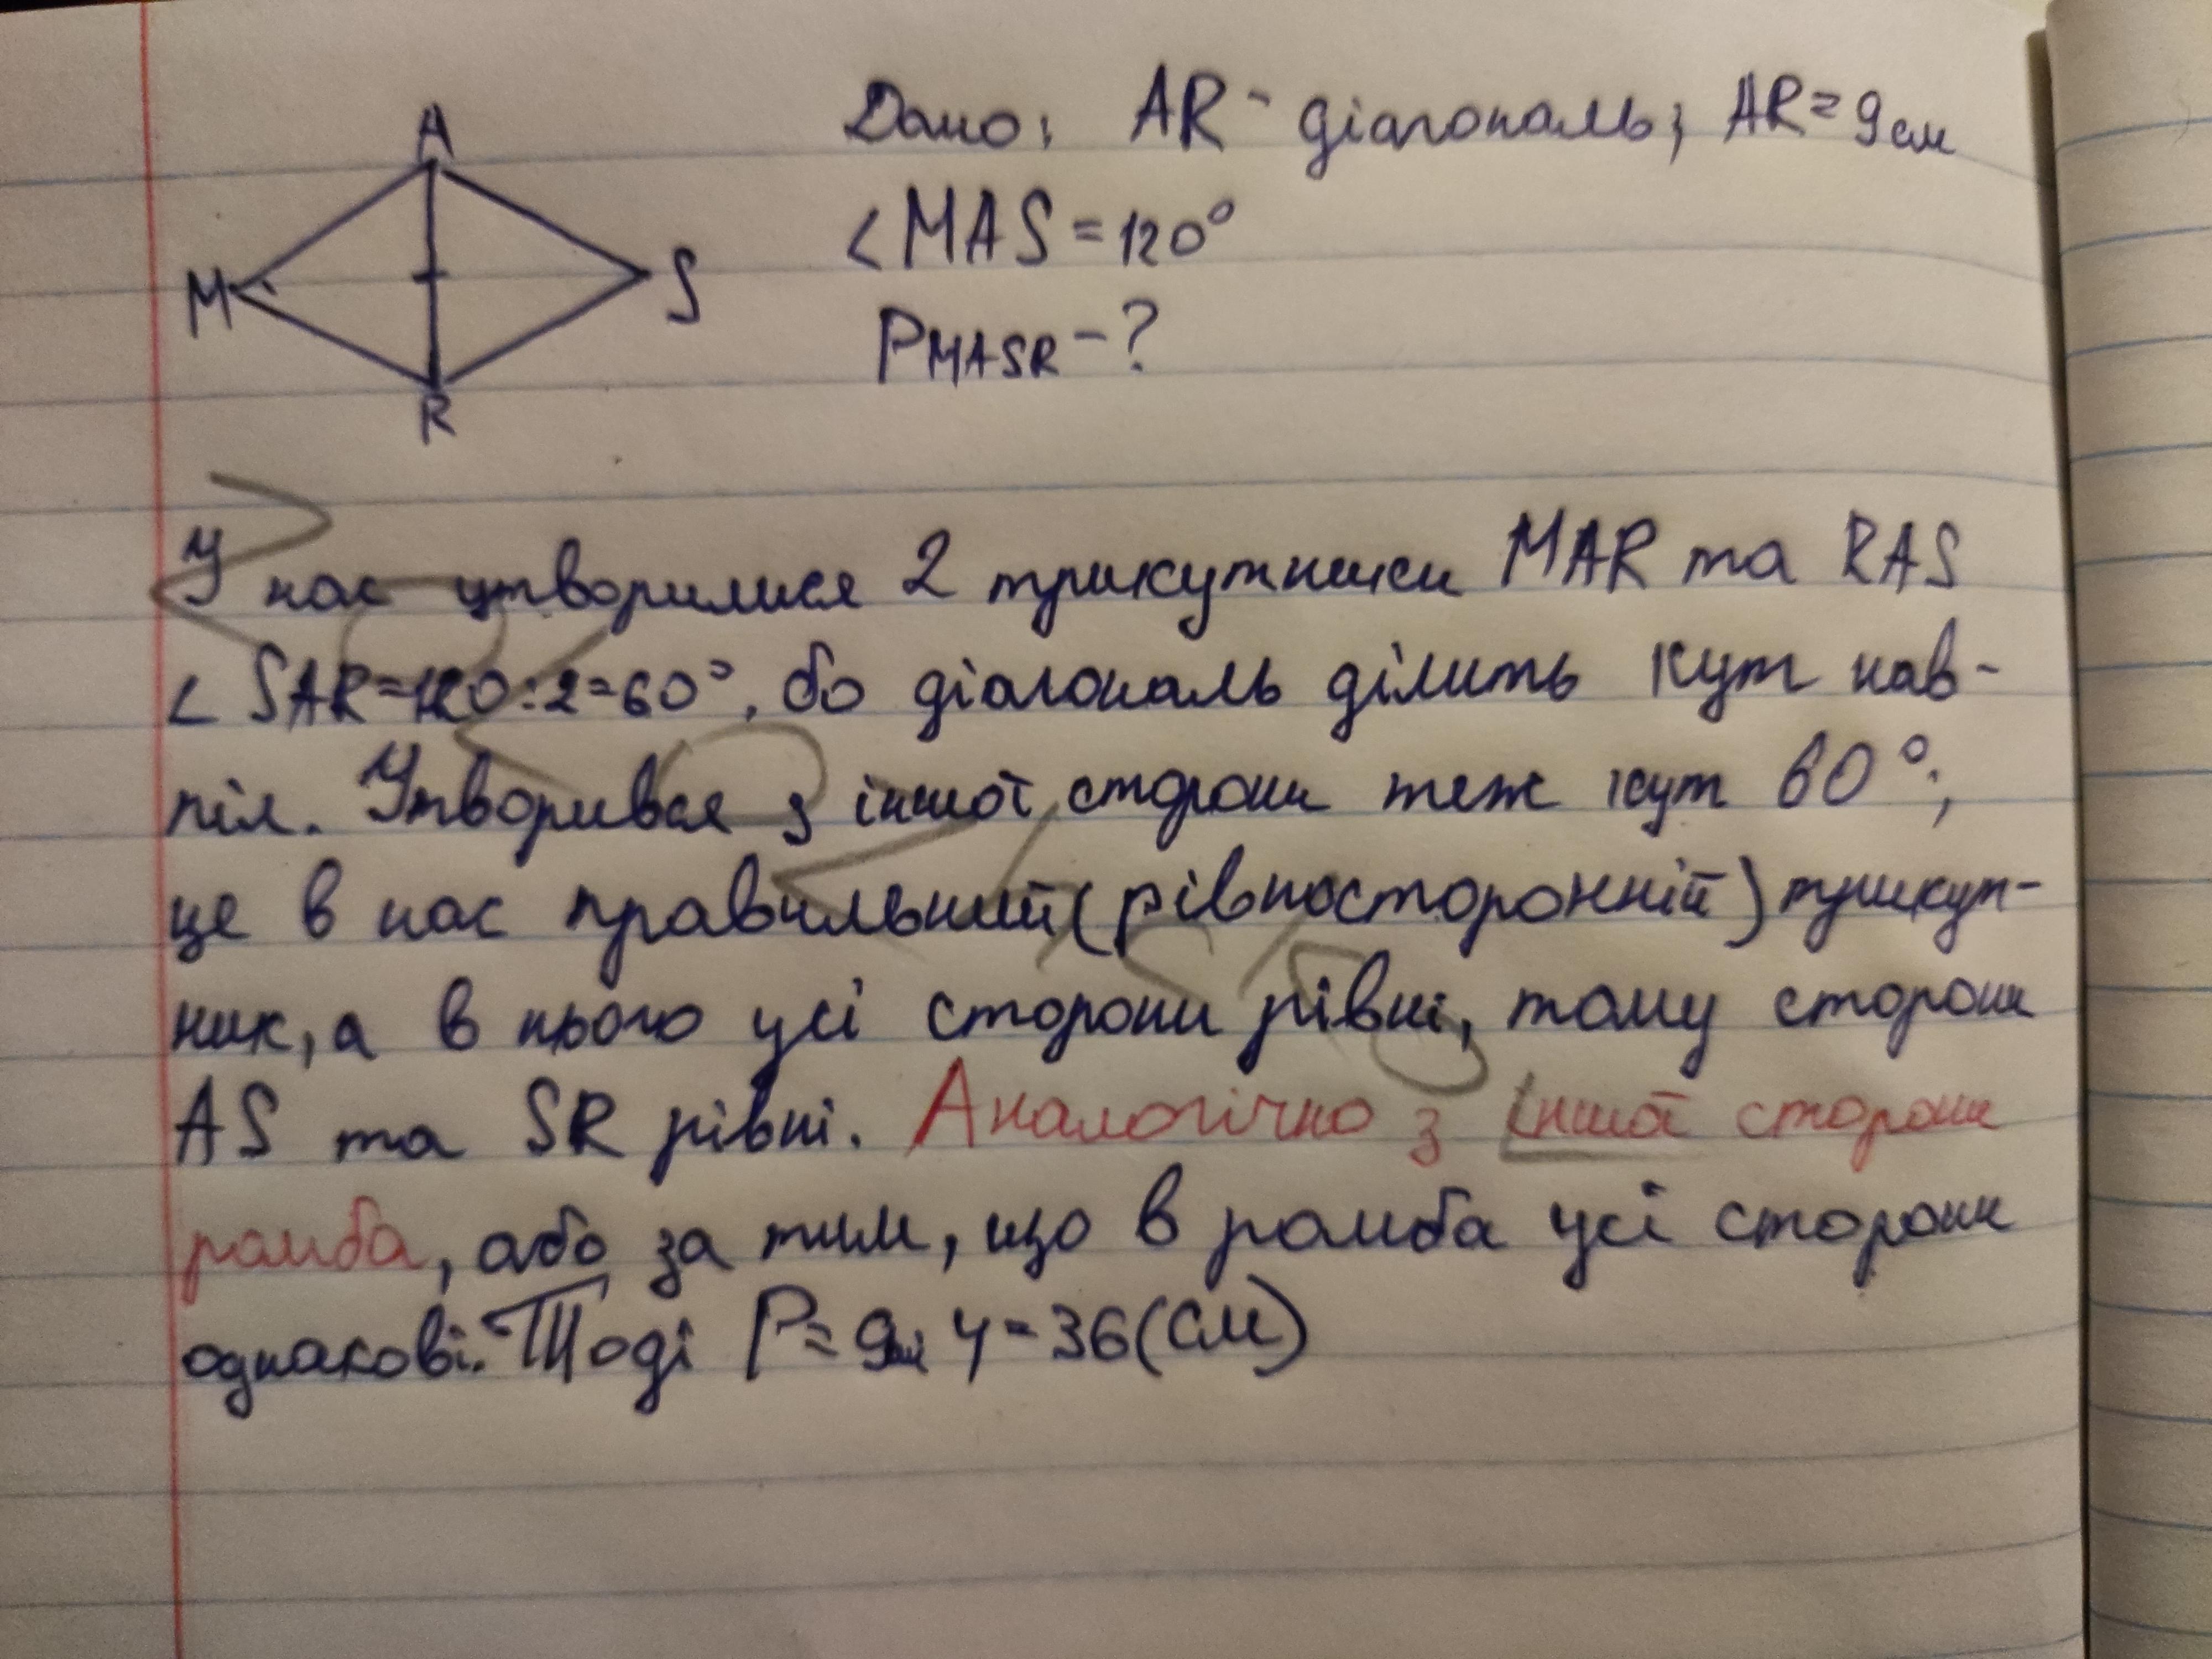 A
Дано: AR - діагональ; AR = 9 см
∠MAS = 120°
M
S
PMASR - ?
R
У нас утворилися 2 трикутники MAR та RAS
∠ SAR = 120 : 2 = 60°, бо діагональ ділить кут нав-
піл. Утворився з іншої сторони теж кут 60°;
це в нас правильний (рівносторонній) трикут-
ник, а в нього усі сторони рівні, тому сторони
AS та SR рівні. Аналогічно з іншої сторони
ромба, або за тим, що в ромба усі сторони
однакові. Тоді P = 9 4 = 36 (см)